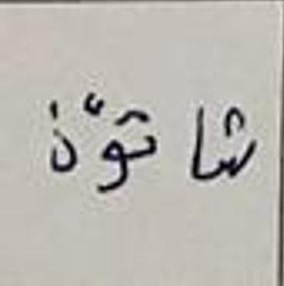 شاتوّذ